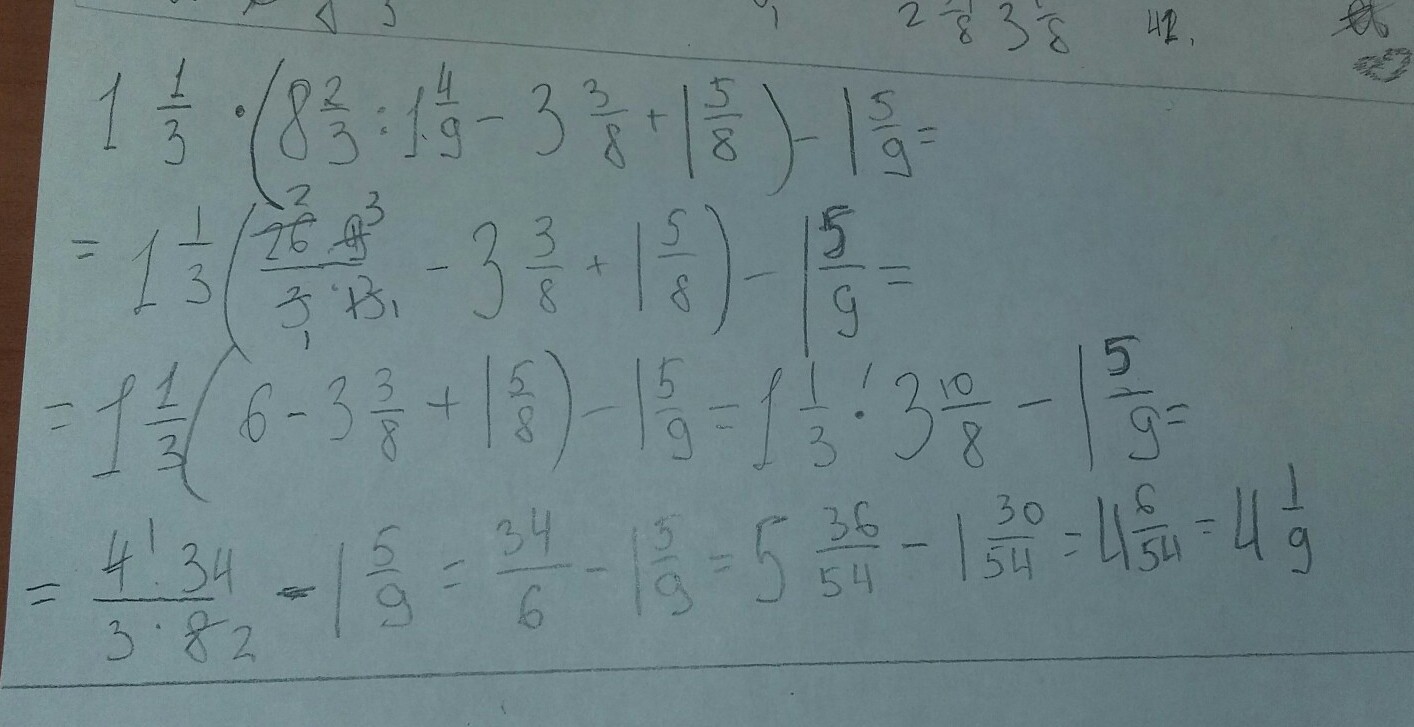 2 1/8 3 1/8 42.
1 1/3 · (8 2/3 : 1 4/9 - 3 3/8 + 1 5/8) - 1 5/9 =
= 1 1/3 (26² · 9³ / 3₁ · 13₁ - 3 3/8 + 1 5/8) - 1 5/9 =
= 1 1/3 (6 - 3 3/8 + 1 5/8) - 1 5/9 = 1 1/3 · 3 10/8 - 1 5/9 =
= 4¹ · 34 / 3 · 8₂ - 1 5/9 = 34/6 - 1 5/9 = 5 36/54 - 1 30/54 = 4 6/54 = 4 1/9